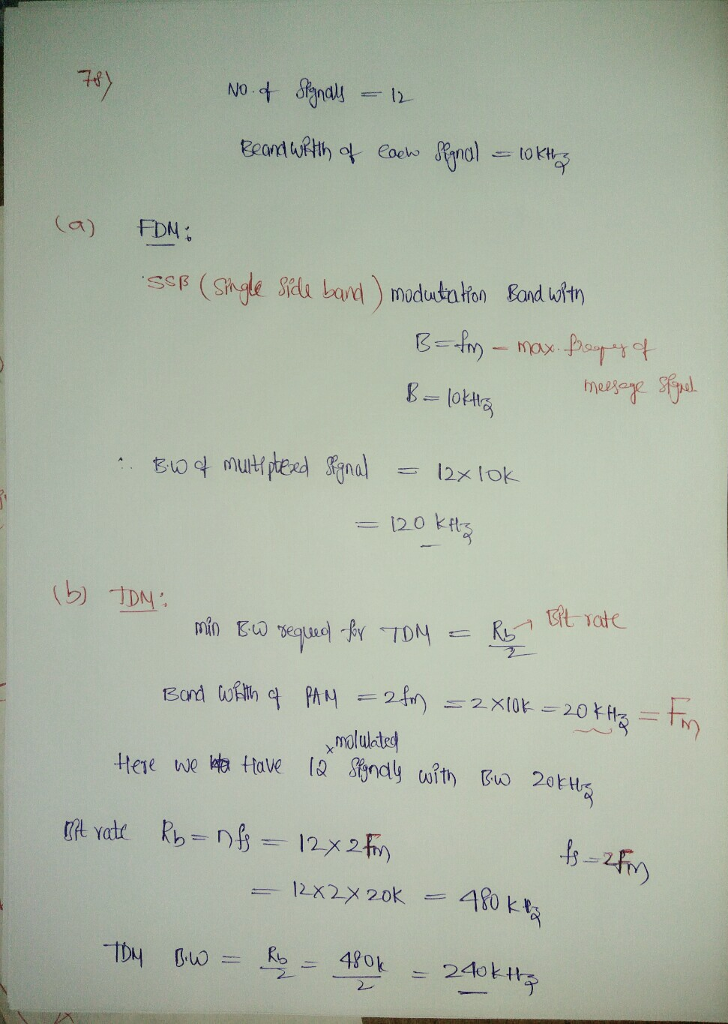 78)
No. of Signals = 12
Beandwidth of each Signal = 10 KHz
(a) FDM:
SSB (Single side band) modulation Band with
B = fm - max. freqency of
message signal
B = 10KHz
∴ B.W of multiplexed Signal = 12×10K
= 120 KHz
(b) TDM:
min B.W requred for TDM = Rb/2 → Bit rate
Band width of PAM = 2fm = 2×10K = 20 KHz = Fm
Here we Have 12 modulated Signals with B.W 20KHz
Bit rate Rb = nfs = 12×2Fm
fs = 2Fm
= 12×2×20K = 480 KHz
TDM B.W = Rb/2 = 480K/2 = 240KHz